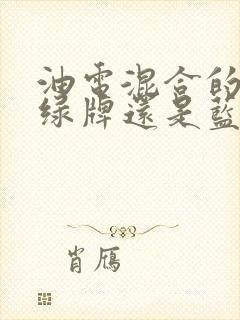 油電混合的
綠牌還是藍
肖鴈